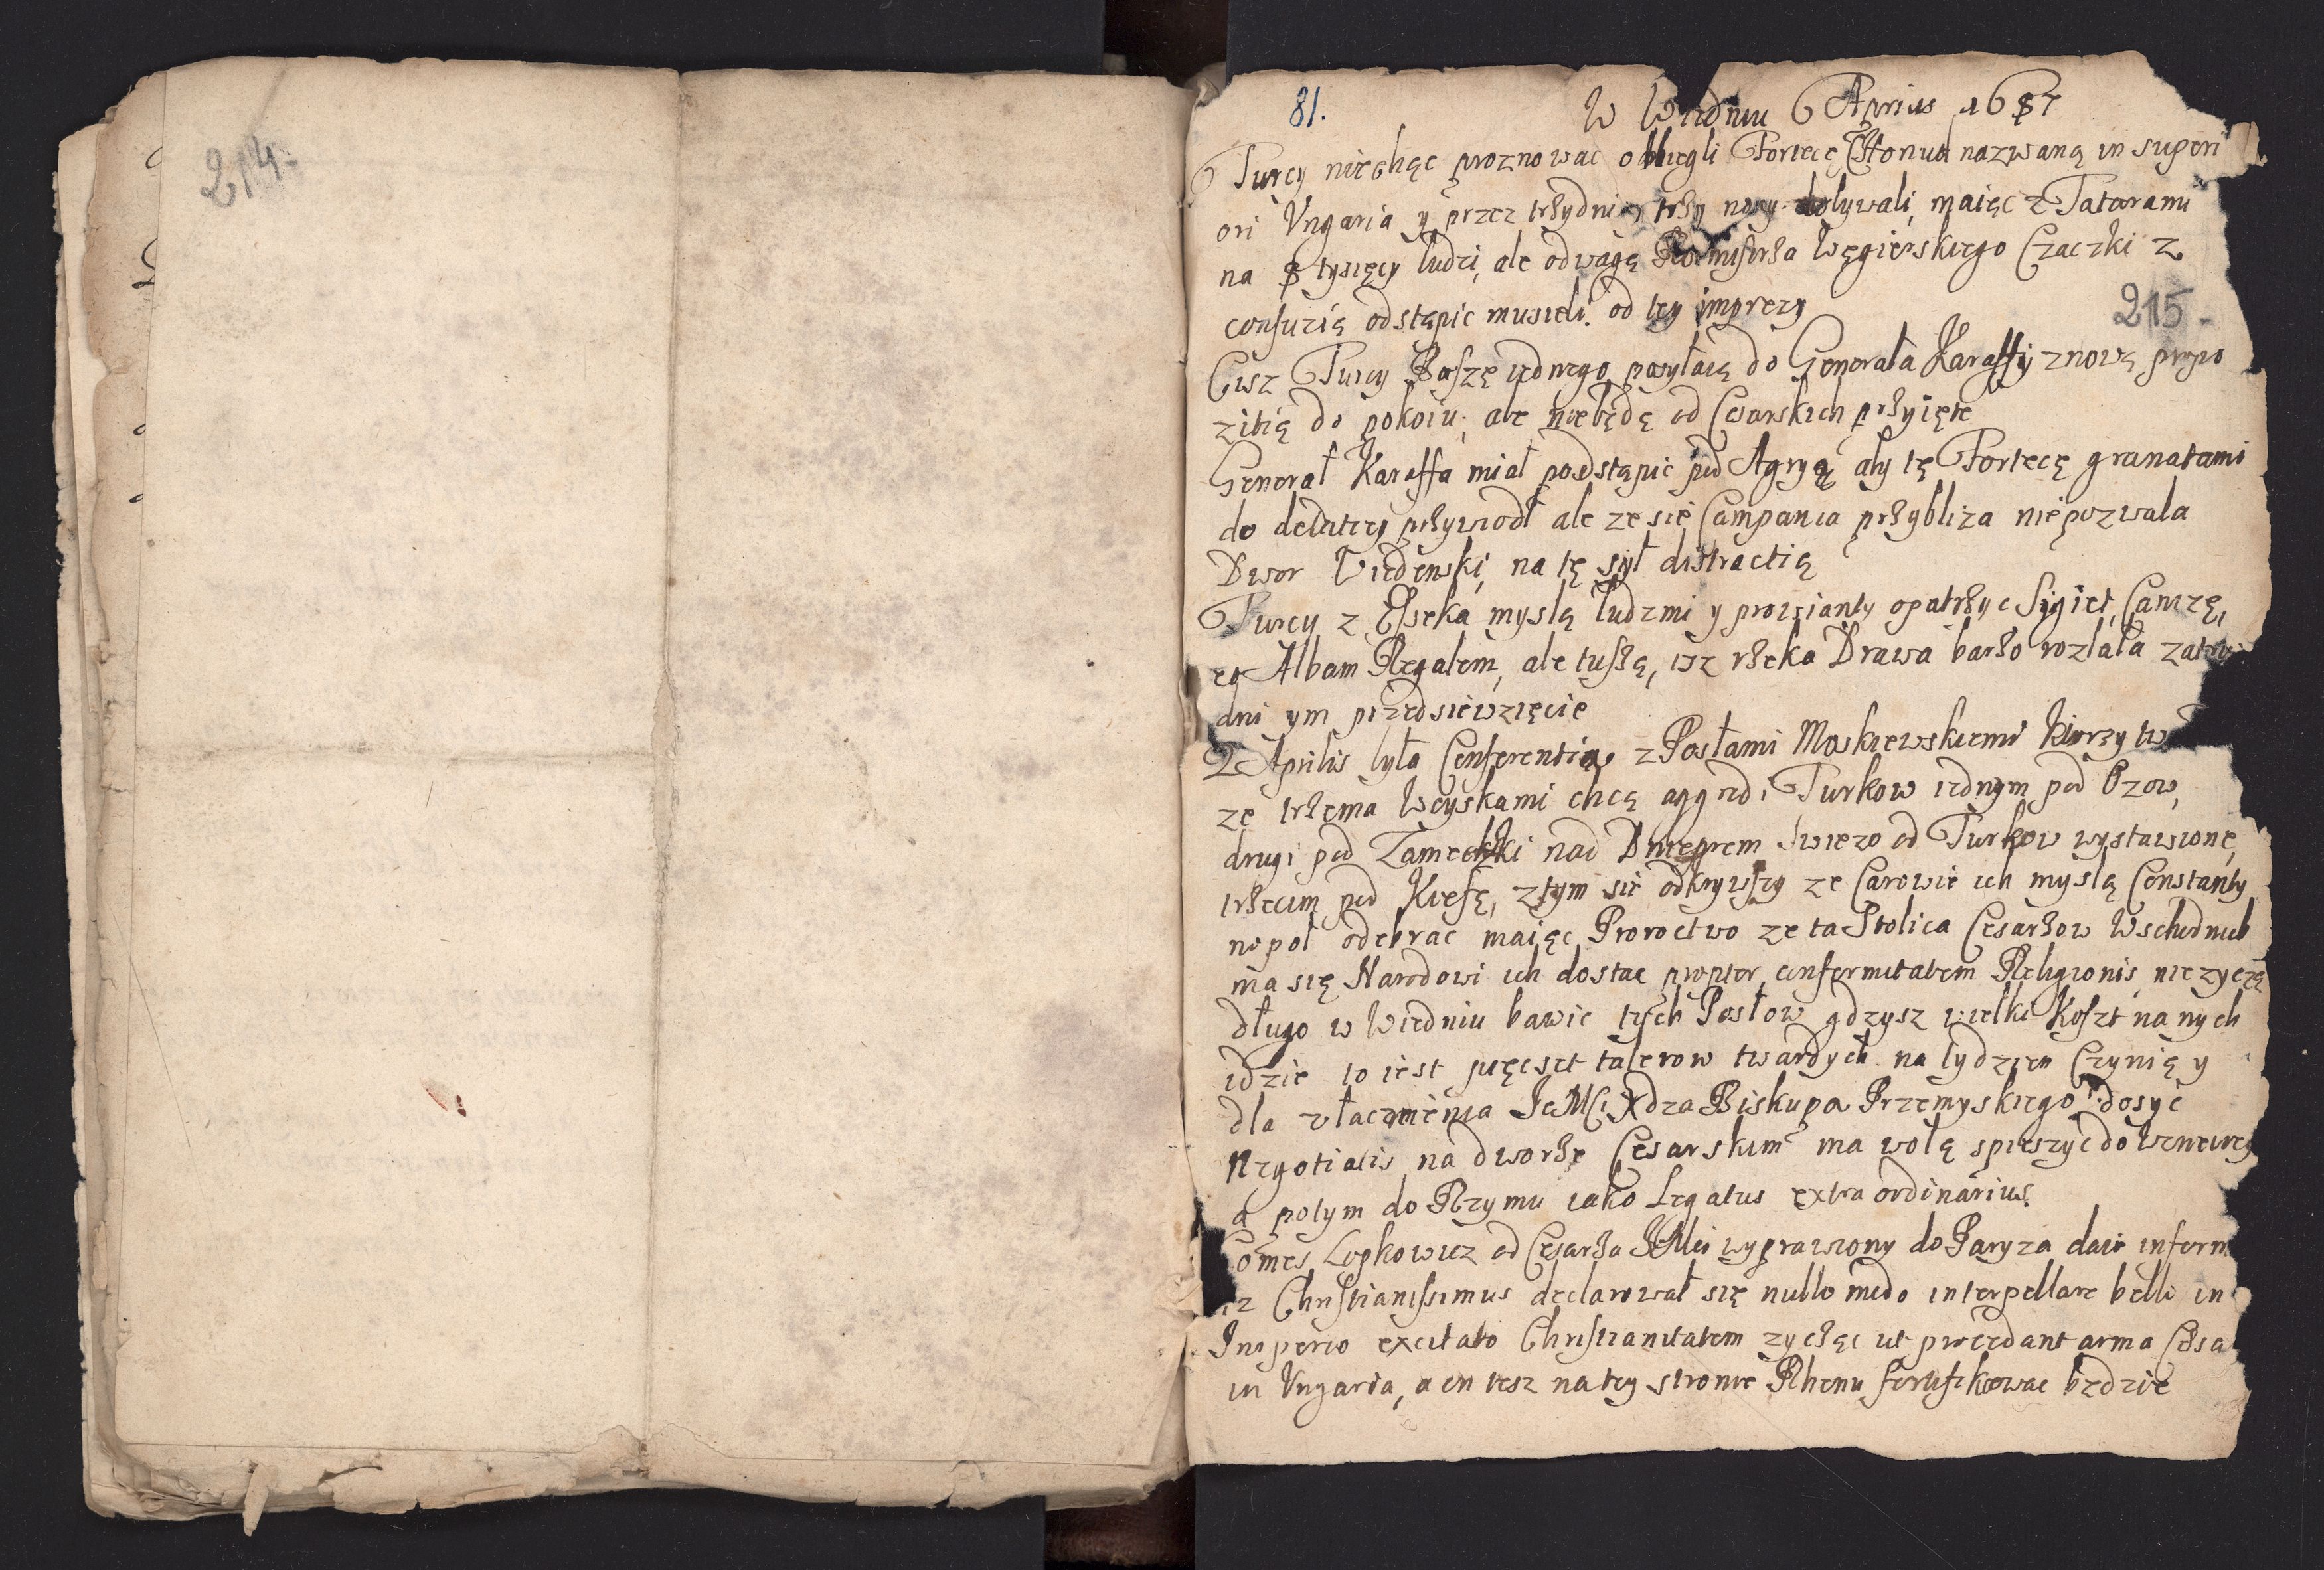 214.
81.
W Wiedniu 6 Aprilis 1687
Turcy niechąc proznowac oblegli Fortecę nazwaną in superi
ori Ungaria y przez trzy dni y trzy nocy dobywali, maiąc z Tatarami
na 8 tysięcy ludzi, ale odwagą Rotmistrza Węgierskiego Czaczki z
confuzią odstąpic musieli od tey imprezy
215.
Cisz Turcy Baszę iednego posyłaią do Generała Karaffy z nową propo
zitią do pokoiu; ale niebędą od Cesarskich przyięte
Generał Karaffa miał podstąpic pod Agryą aby tę Fortecę granatami
do deditiey przywiodł ale ze się Campania przybliza niepozwala
Dwor Viedenski, na tę sył distractią
Turcy z Esseka myslą ludzmi y prowianty opatrzyc Sygiet, Canizę,
et Albam Regalem, ale tuszą, isz rzeka Drawa barzo rozlała zatru
dni ym przedsiewzięcie
2 Aprilis była Conferentia z Posłami Moskiewskiemi ktorzy tw
ze trzema Woyskami chcą aggredi Turkow iednym pod Ozow,
drugi pod Zameczki nad Dnieprem swiezo od Turkow wystawione,
trzecim pod Kiefę, z tym się odkrywszy ze Carowie ich myslą Constanty
nopol odebrac maiąc Proroctwo ze ta Stolica Cesarzow Wschodnich
ma się Narodowi ich dostac propter conformitatem Religionis, nie zyczą
długo w Wiedniu bawic tych Posłow gdzysz wielki koszt na nych
idzie to iest pięcset talerow twardych na tydzien Czynią y
dla Je Mci Xdza Biskupa Przemyskiego dosyc
Negotialis na dworze Cesarskim ma wolą spieszyc do Weneciey
a potym do Rzymu iako Legatus extra ordinarius.
Comes Lopkowicz od Cesarza JMci wyprawiony do Paryza daie inform
iz Christianissimus declarował się nullo modo interpellare bello in
Imperio excitato Christianitatem zycząc ut procedant arma Cesa
in Ungaria, a on tesz na tey stronie Rhenu fortifikowac będzie